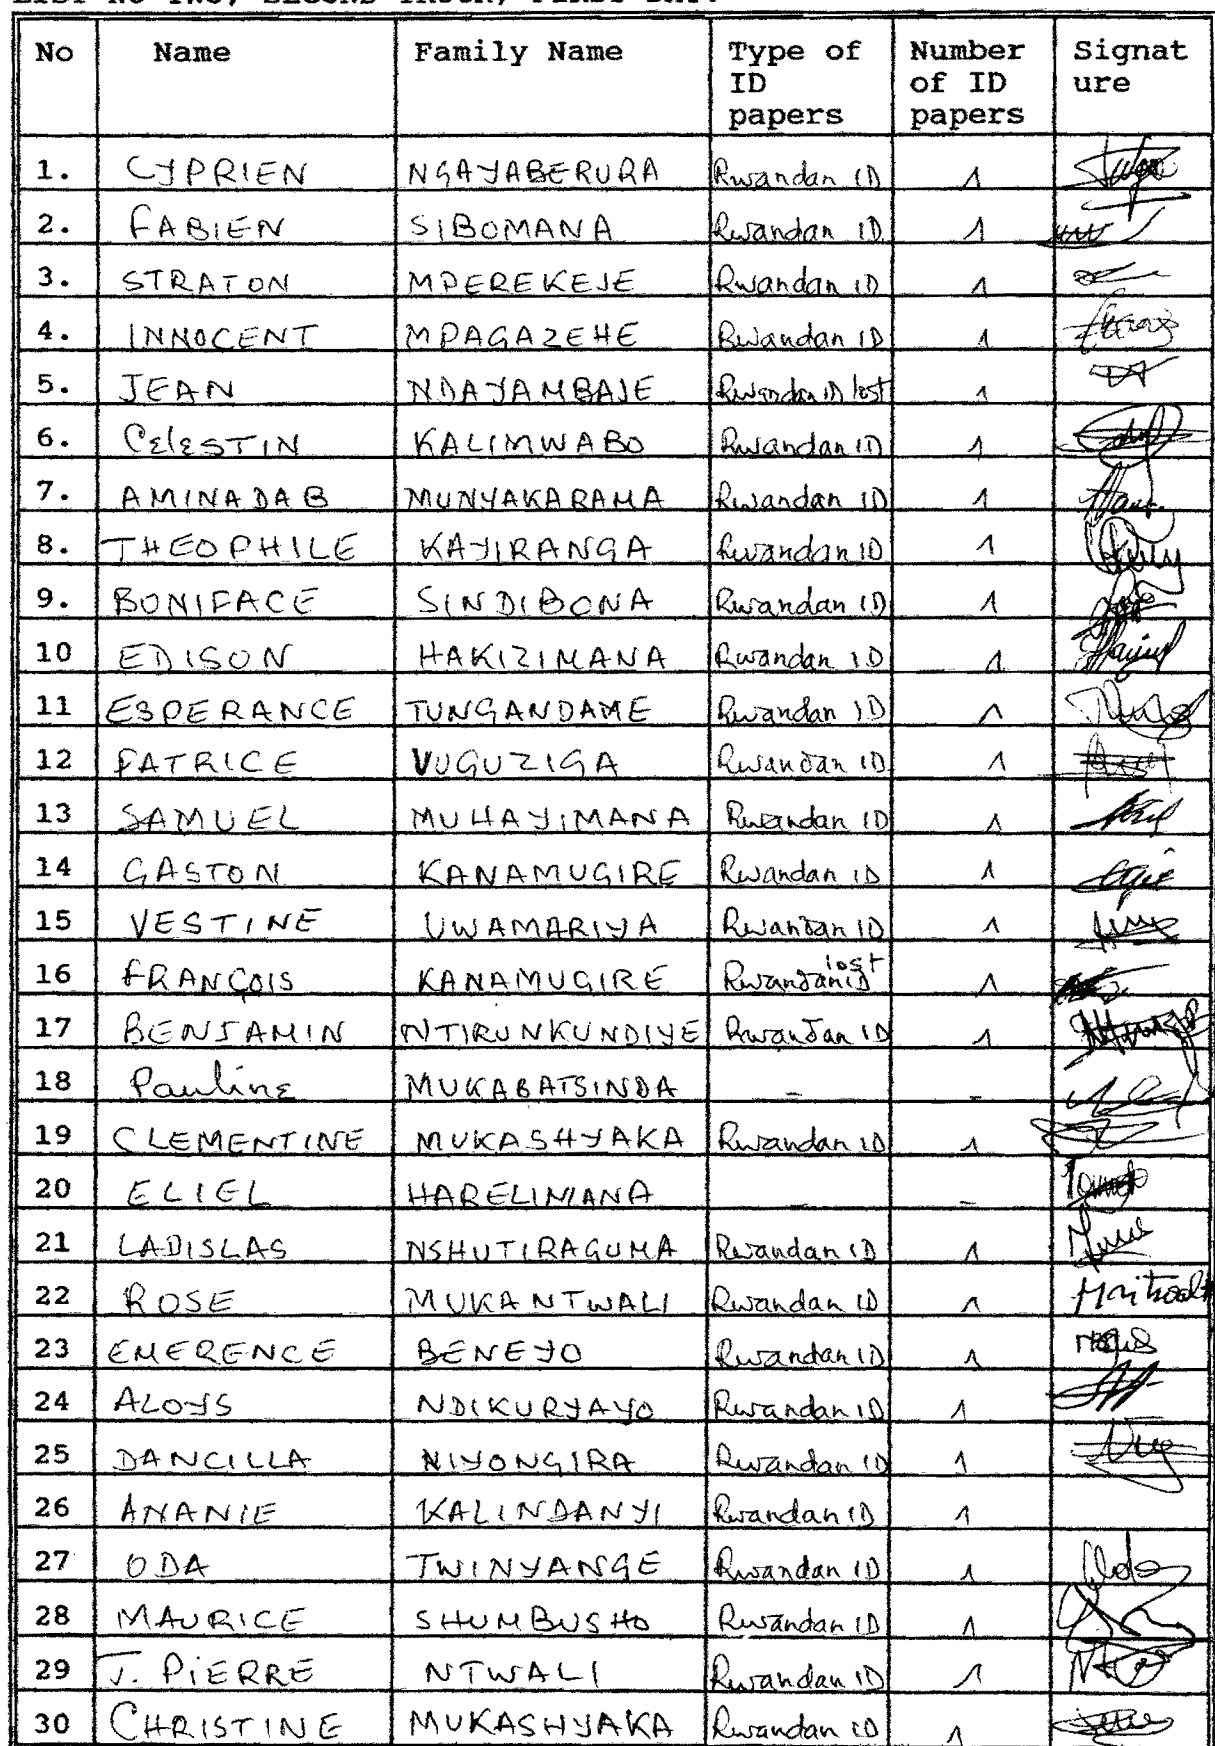 LIST NO TWO, SECOND TRUCK, FIRST DAY.
No Name Family Name Type of ID papers Number of ID papers Signat ure
1. CYPRIEN NGAYABERURA Rwandan ID 1
2. FABIEN SIBOMANA Rwandan ID 1
3. STRATON MPEREKEJE Rwandan ID 1
4. INNOCENT MPAGAZEHE Rwandan ID 1
5. JEAN NDAYAMBAJE Rwandan ID lost 1
6. CELESTIN KALIMWABO Rwandan ID 1
7. AMINADAB MUNYAKARAMA Rwandan ID 1
8. THEOPHILE KAYIRANGA Rwandan ID 1
9. BONIFACE SINDIBONA Rwandan ID 1
10 EDISON HAKIZIMANA Rwandan ID 1
11 ESPERANCE TUNGANDAME Rwandan ID 1
12 PATRICE VUGUZIGA Rwandan ID 1
13 SAMUEL MUHAYIMANA Rwandan ID 1
14 GASTON KANAMUGIRE Rwandan ID 1
15 VESTINE UWAMARIYA Rwandan ID 1
16 FRANÇOIS KANAMUGIRE Rwandan ID lost 1
17 BENJAMIN NTIRUNKUNDIYE Rwandan ID 1
18 Pauline MUKABATSINDA - -
19 CLEMENTINE MUKASHYAKA Rwandan ID 1
20 ELIEL HARELIMANA - -
21 LADISLAS NSHUTIRAGUMA Rwandan ID 1
22 ROSE MUKANTWALI Rwandan ID 1
23 EMERENCE BENEYO Rwandan ID 1
24 ALOYS NDIKURYAYO Rwandan ID 1
25 DANCILLA NIYONGIRA Rwandan ID 1
26 ANANIE KALINDANYI Rwandan ID 1
27 ODA TWINYANGE Rwandan ID 1
28 MAURICE SHUMBUSHO Rwandan ID 1
29 J. PIERRE NTWALI Rwandan ID 1
30 CHRISTINE MUKASHYAKA Rwandan ID 1